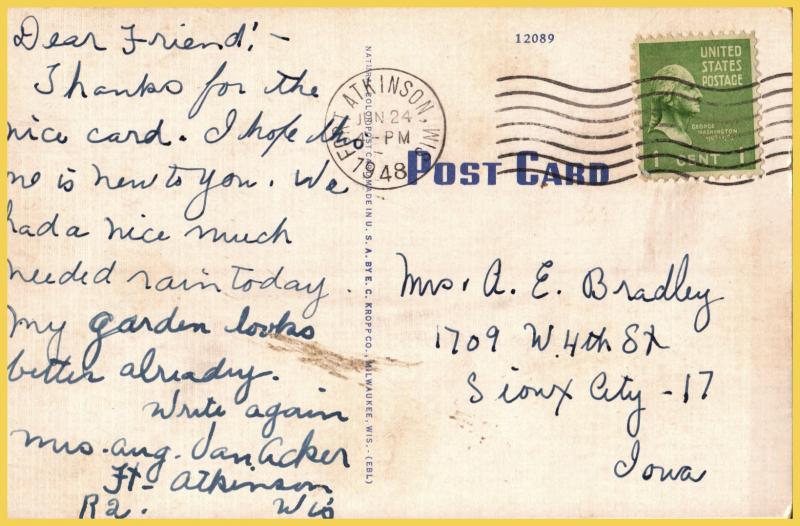 Dear Friend! -
Thanks for the
nice card. I hope this
one is new to you. We
had a nice much
needed rain today.
My garden looks
better already.
Write again
Mrs. Aug. VanAcker
Ft- Atkinson
R2. Wis
12089
UNITED
STATES
POSTAGE
GEORGE
WASHINGTON
1 CENT 1
FORT ATKINSON, WIS.
JUN 24
4-PM
1948
POST CARD
MADE IN U.S.A. BY E.C. KROPP CO., MILWAUKEE, WIS.-(EBL)
Mrs. A. E. Bradley
1709 W. 4th St
Sioux City - 17
Iowa